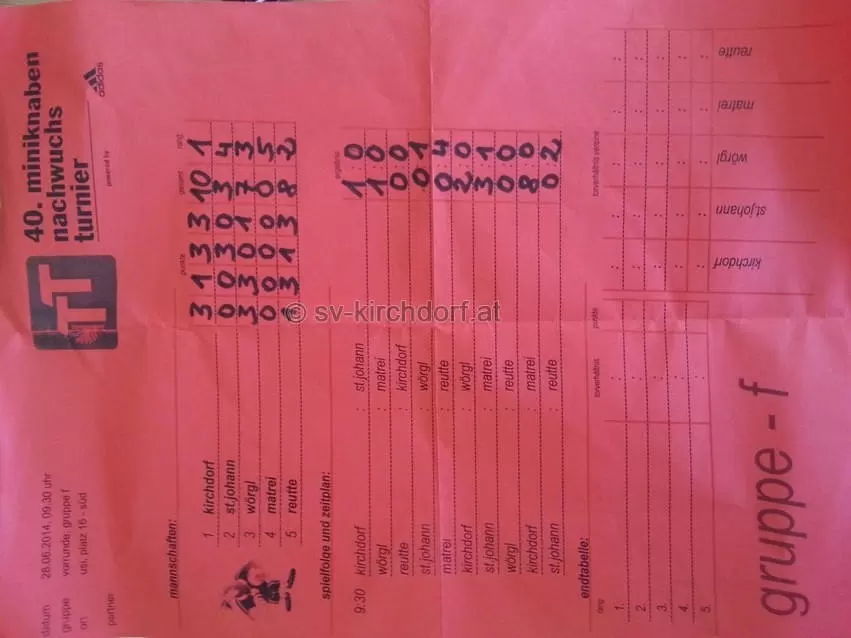 datum 28.06.2014, 09.30 uhr
gruppe vorrunde; gruppe f
on usi, platz 16 - süd
partner
TT
40. miniknaben
nachwuchs
turnier
powered by adidas
mannschaften: punkte gesamt rang
1 kirchdorf 3 1 3 3 10 1
2 st.johann 0 0 3 0 3 4
3 wörgl 3 3 0 1 7 3
4 matrei 0 0 0 0 0 5
5 reutte 1 3 1 3 8 2
© sv-kirchdorf.at
spielfolge und zeitplan: ergebnis
9.30 kirchdorf : st.johann 1 : 0
wörgl : matrei 1 : 0
reutte : kirchdorf 0 : 0
st.johann : wörgl 0 : 1
matrei : reutte 0 : 4
kirchdorf : wörgl 2 : 0
st.johann : matrei 3 : 1
wörgl : reutte 0 : 0
kirchdorf : matrei 8 : 0
st.johann : reutte 0 : 2
endtabelle:
rang torverhältnis punkte torverhältnis vereine
1. : : : : : :
2. : : : : : :
3. : : : : : :
4. : : : : : :
5. : : : : : :
kirchdorf st.johann wörgl matrei reutte
gruppe - f